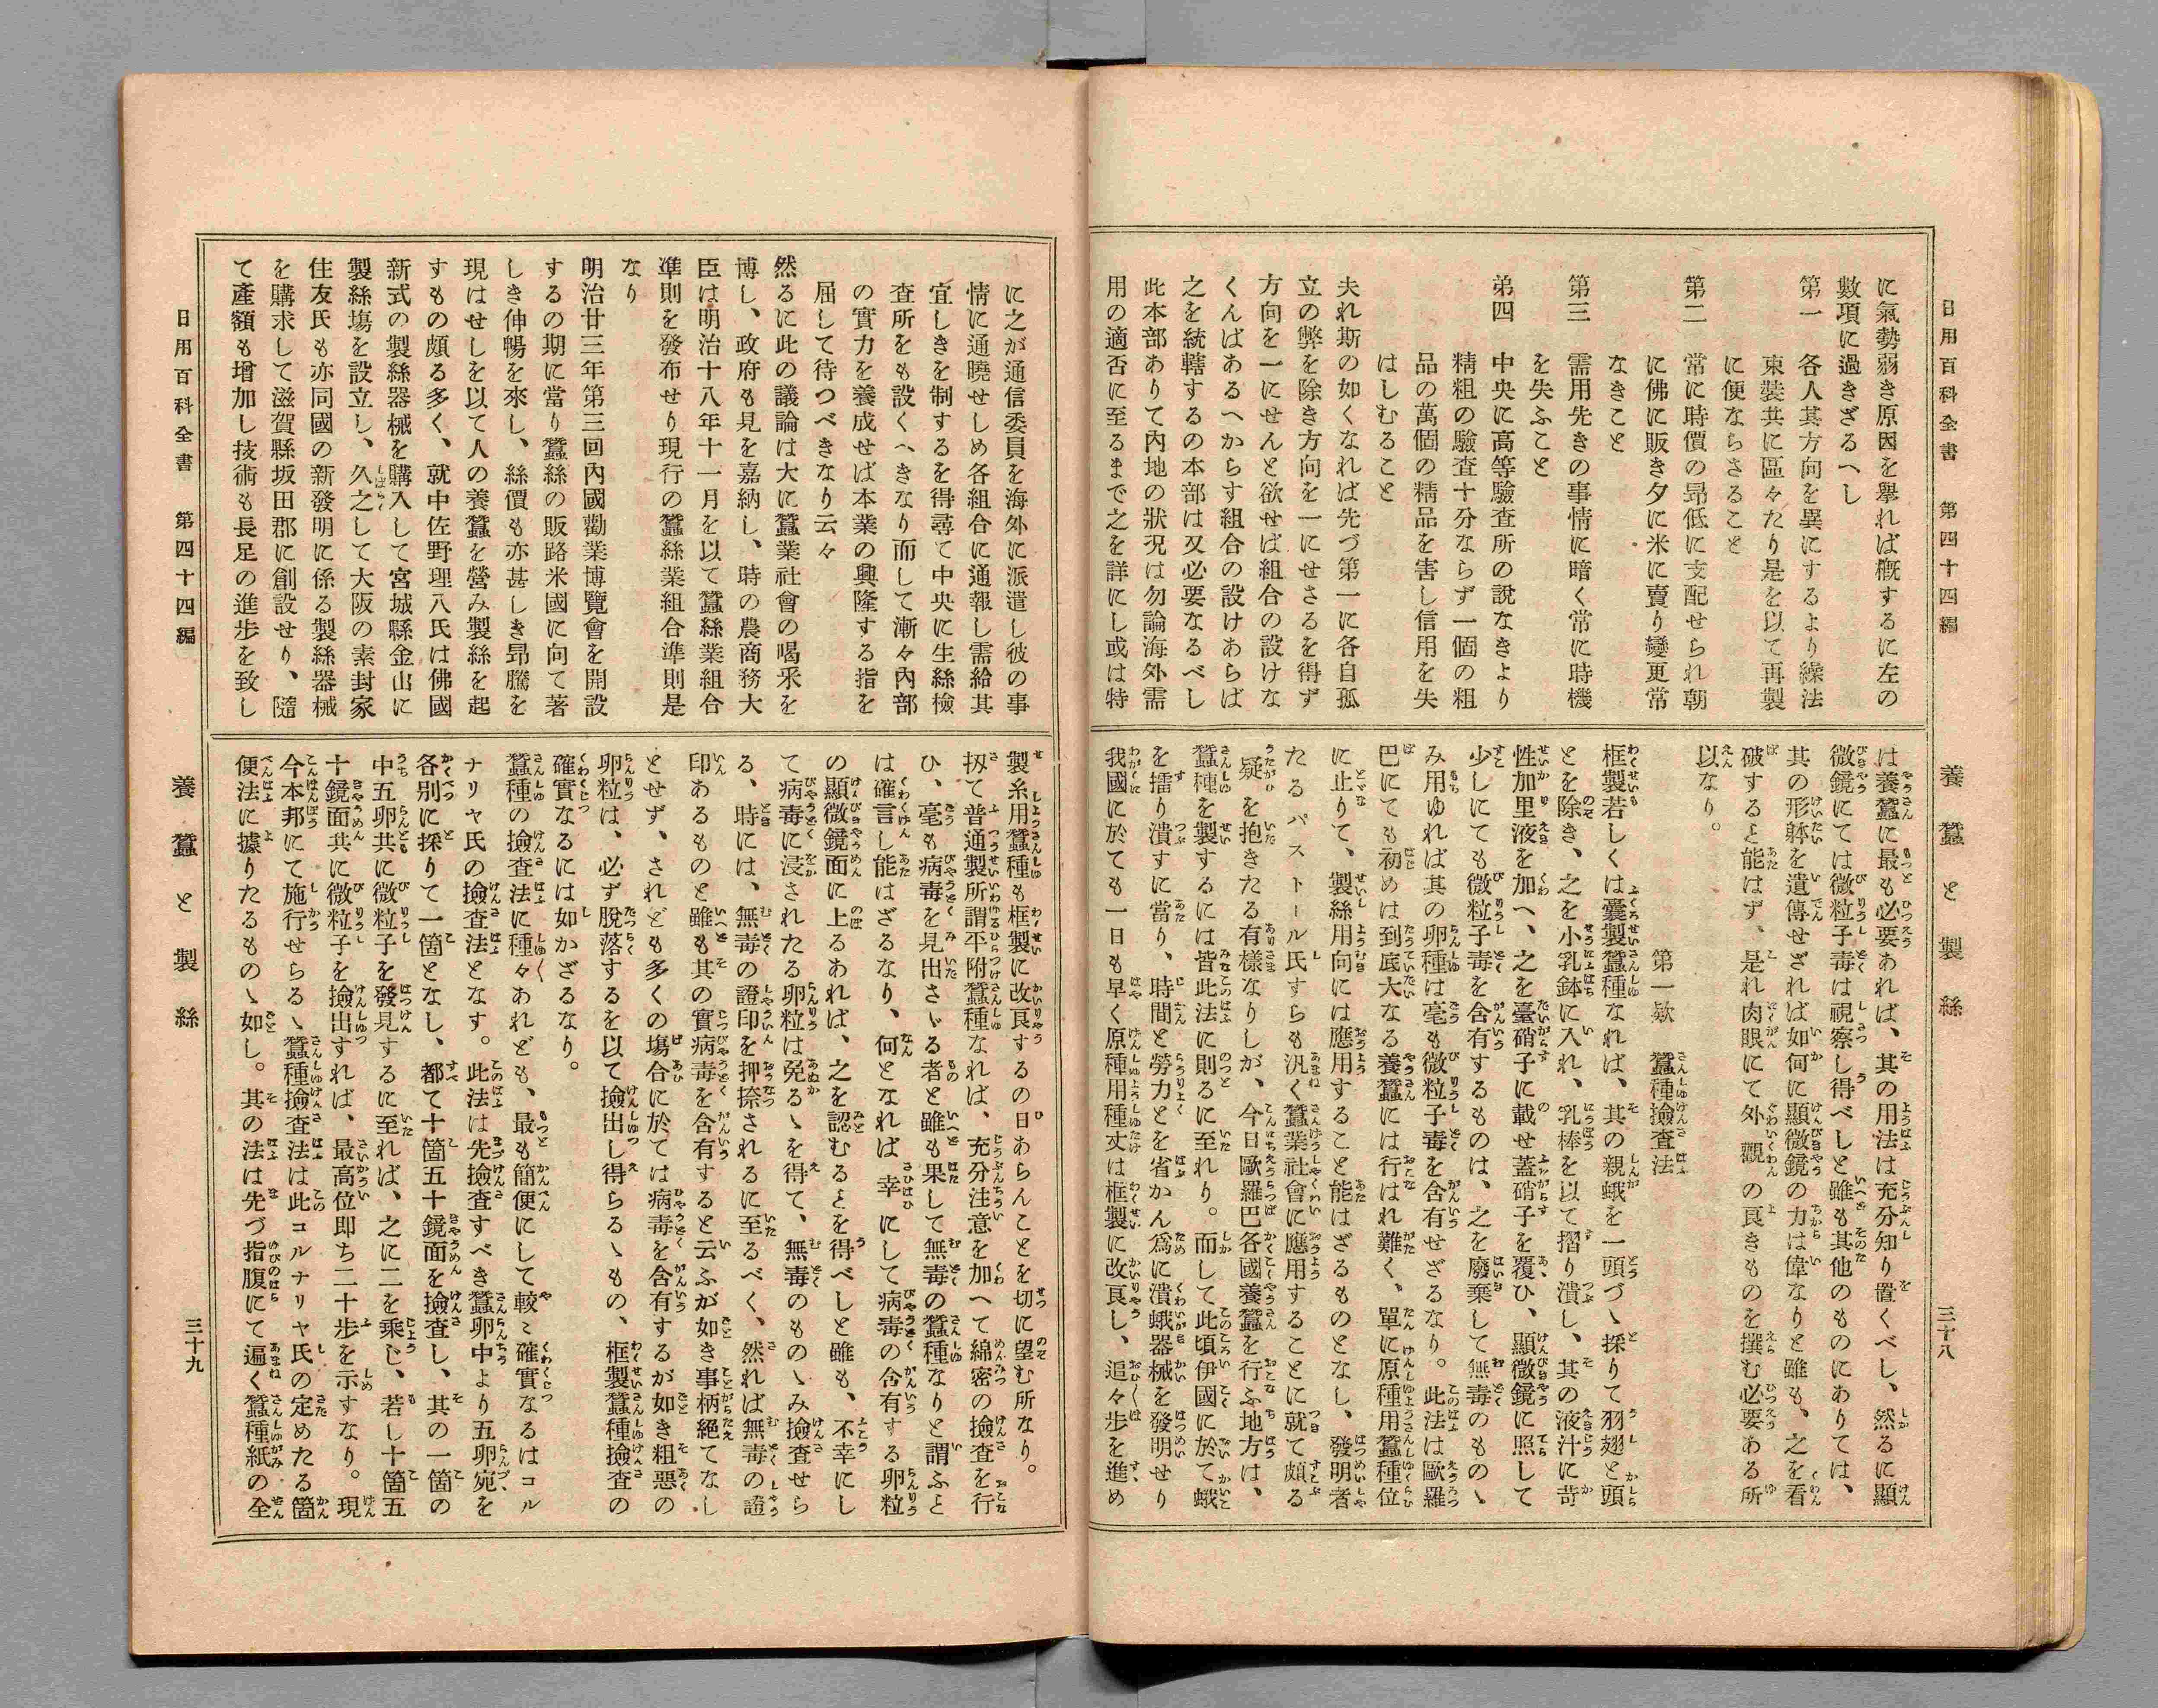 日用百科全書　第四十四編
に氣勢弱き原因を擧れば槪するに左の
數項に過きざるへし
第一　各人其方向を異にするより繰法
東裝共に區々たり是を以て再製
に便ならさること
第二　常に時價の昻低に支配せられ朝
に佛に販き夕に米に賣り變更常
なきこと
第三　需用先きの事情に暗く常に時機
を失ふこと
弟四　中央に高等驗査所の說なきより
精粗の驗査十分ならず一個の粗
品の萬個の精品を害し信用を失
はしむること
夫れ斯の如くなれば先づ第一に各自孤
立の弊を除き方向を一にせさるを得ず
方向を一にせんと欲せば組合の設けな
くんばあるへからす組合の設けあらば
之を統轄するの本部は又必要なるべし
此本部ありて內地の狀況は勿論海外需
用の適否に至るまで之を詳にし或は特
養蠶と製絲
三十八
は養蠶に最も必要あれば、其の用法は充分知り置くべし、然るに顯
微鏡にては微粒子毒は視察し得べしと雖も其他のものにありては、
其の形躰を遺傳せざれば如何に顯微鏡の力は偉なりと雖も、之を看
破するヿ能はず、是れ肉眼にて外觀の良きものを撰む必要ある所
以なり。
第一欵　蠶種撿査法
框製若しくは囊製蠶種なれば、其の親蛾を一頭づゝ採りて羽翅と頭
とを除き、之を小乳鉢に入れ、乳棒を以て摺り潰し、其の液汁に苛
性加里液を加へ、之を臺硝子に載せ蓋硝子を覆ひ、顯微鏡に照して
少しにても微粒子毒を含有するものは、之を廢棄して無毒のものゝ
み用ゆれば其の卵種は毫も微粒子毒を含有せざるなり。此法は歐羅
巴にても初めは到底大なる養蠶には行はれ難く、單に原種用蠶種位
に止りて、製絲用向には應用すること能はざるものとなし、發明者
たるパストール氏すらも汎く蠶業社會に應用することに就て頗る
疑を抱きたる有樣なりしが、今日歐羅巴各國養蠶を行ふ地方は、
蠶種を製するには皆此法に則るに至れり。而して此頃伊國に於て蛾
を擂り潰すに當り、時間と勞力とを省かん爲に潰蛾器械を發明せり
我國に於ても一日も早く原種用種丈は框製に改良し、追々步を進め
に之が通信委員を海外に派遣し彼の事
情に通曉せしめ各組合に通報し需給其
宜しきを制するを得尋て中央に生絲檢
査所をも設くへきなり而して漸々內部
の實力を養成せば本業の興隆する指を
屈して待つべきなり云々
然るに此の議論は大に蠶業社會の喝采を
博し、政府も見を嘉納し、時の農商務大
臣は明治十八年十一月を以て蠶絲業組合
準則を發布せり現行の蠶絲業組合準則是
なり
明治廿三年第三回內國勸業博覽會を開設
するの期に當り蠶絲の販路米國に向て著
しき伸暢を來し、絲價も亦甚しき昻騰を
現はせしを以て人の養蠶を營み製絲を起
すもの頗る多く、就中佐野理八氏は佛國
新式の製絲器械を購入して宮城縣金山に
製絲塲を設立し、久之して大阪の素封家
住友氏も亦同國の新發明に係る製絲器械
を購求して滋賀縣坂田郡に創設せり、隨
て產額も增加し技術も長足の進步を致し
日用百科全書　第四十四編
製糸用蠶種も框製に改良するの日あらんことを切に望む所なり。
扨て普通製所謂平附蠶種なれば、充分注意を加へて綿密の撿査を行
ひ、毫も病毒を見出さゞる者と雖も果して無毒の蠶種なりと謂ふヿ
は確言し能はざるなり、何となれば幸にして病毒の含有する卵粒
の顯微鏡面に上るあれば、之を認むるヿを得べしと雖も、不幸にし
て病毒に浸されたる卵粒は免るゝを得て、無毒のものゝみ撿査せら
る、時には、無毒の證印を押捺されるに至るべく、然れば無毒の證
印あるものと雖も其の實病毒を含有すると云ふが如き事柄絕てなし
とせず、されども多くの塲合に於ては病毒を含有するが如き粗惡の
卵粒は、必ず脫落するを以て撿出し得らるゝもの、框製蠶種撿査の
確實なるには如かざるなり。
蠶種の撿査法に種々あれども、最も簡便にして較〻確實なるはコル
ナリヤ氏の撿査法となす。此法は先撿査すべき蠶卵中より五卵宛を
各別に採りて一箇となし、都て十箇五十鏡面を撿査し、其の一箇の
中五卵共に微粒子を發見するに至れば、之に二を乘じ、若し十箇五
十鏡面共に微粒子を撿出すれば、最高位卽ち二十步を示すなり。現
今本邦にて施行せらるゝ蠶種撿査法は此コルナリヤ氏の定めたる箇
便法に據りたるものゝ如し。其の法は先づ指腹にて遍く蠶種紙の全
養蠶と製絲
三十九